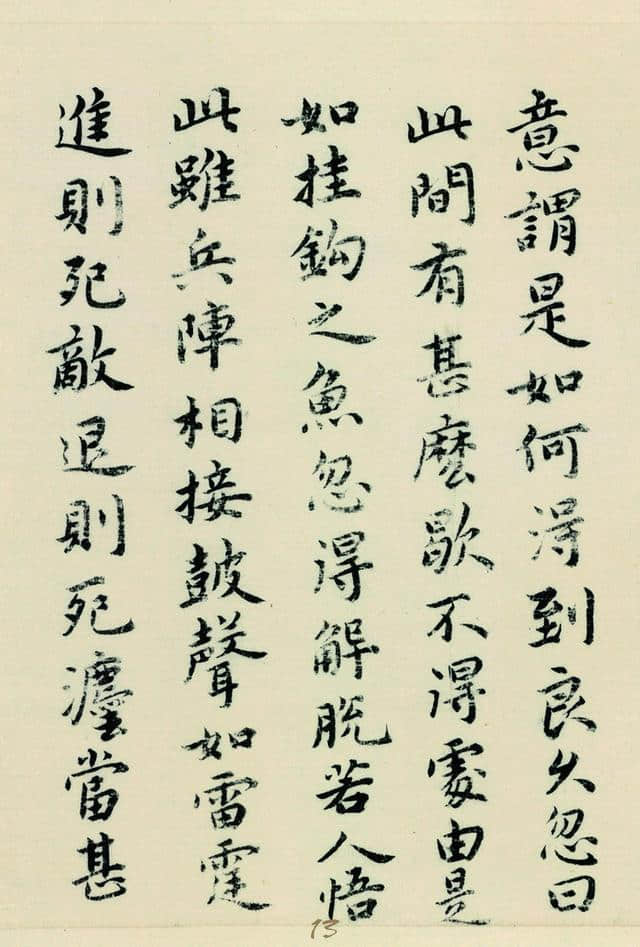 意謂是如何得到良久忽曰
此間有甚麼歇不得處由是
如挂鈎之魚忽得解脫若人悟
此雖兵陣相接皷聲如雷霆
進則死敵退則死灋當甚
13